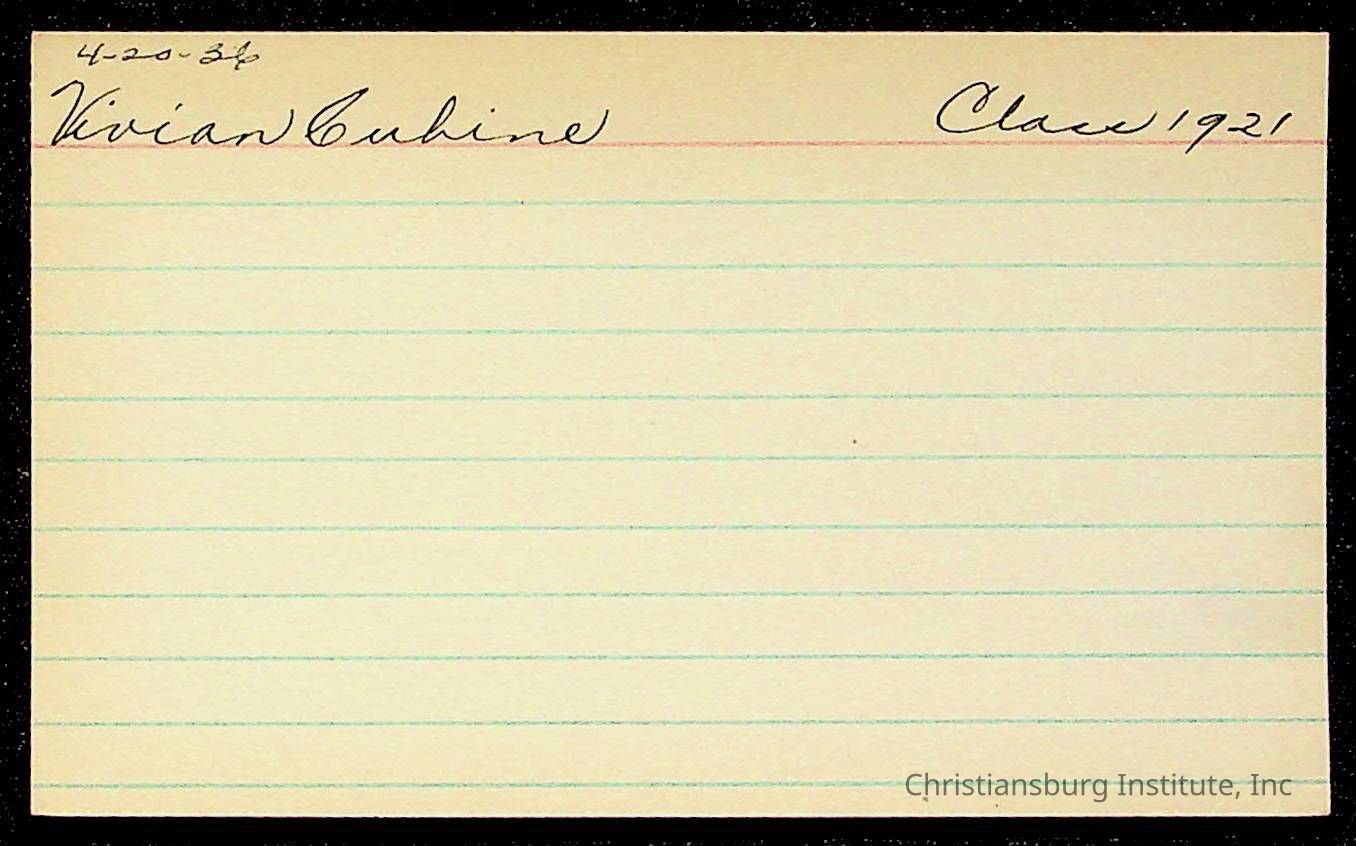 4-20-36
Vivian Cubine Class 1921
Christiansburg Institute, Inc